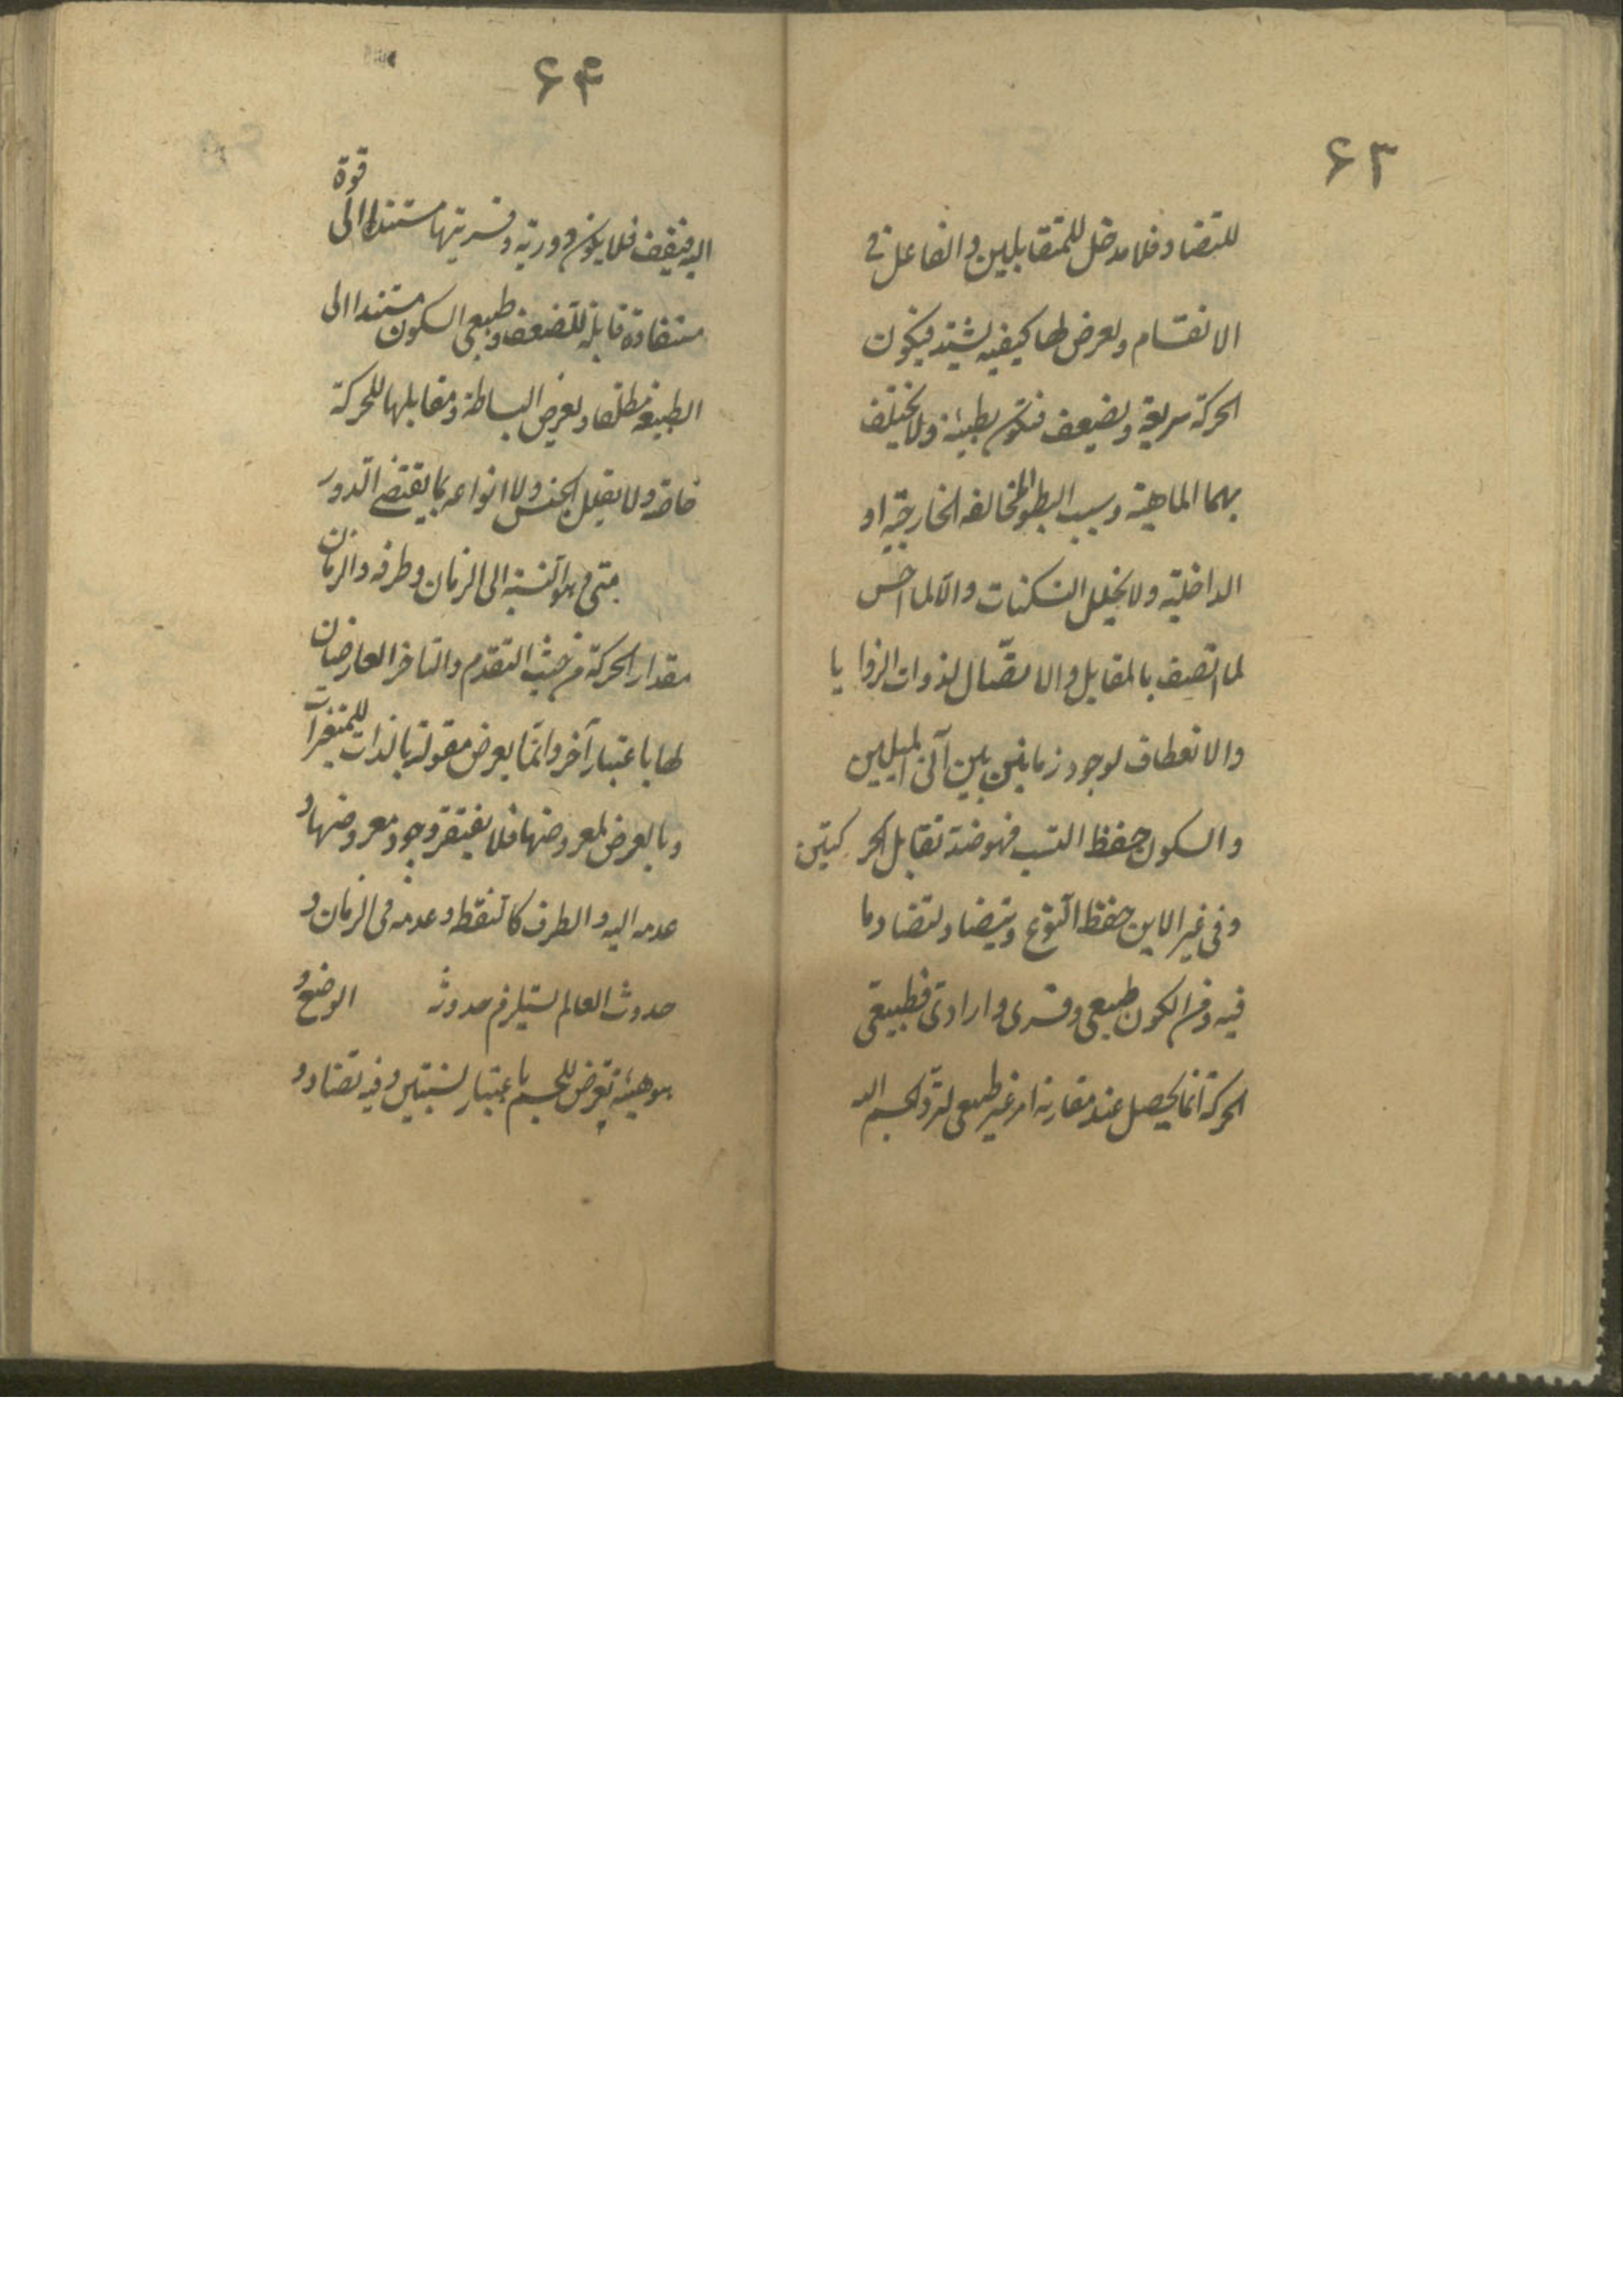 ۶۳
للتضاد فلا مدخل للمتقابلين والفاعل في
الانقسام ويعرض لها كيفية يشتد فيكون
الحركة سريعة ويضعف فتكون بطيئة ولا يختلف
بهما الماهية وسبب البطؤ المخالفة الخارجية او
الداخلية ولا يخلل السكنات والا لما احس
لما اتصف بالمقابل والاتصال لذوات الزوايا
والانعطاف لوجود زمانين بين آنى الميلين
والسكون حفظ النسب فهو ضد تقابل الحركتين
وفى غير الاين حفظ النوع ويتضاد لتضاد ما
فيه ومن الكون طبيعى وقسرى وارادى فطبيعى
الحركة انما يحصل عند مقارنة امر غير طبيعى لترد الجسم اليه
۶۴
اليه فيقف فلا يكون دورية وقسريتها مستندا الى قوة
مستفادة قابلة للتضعف وطبيعى السكون مستندا الى
الطبيعة مطلقا ويعرض البساطة ومقابلها للحركة
خاصة ولا يعلل الجنس ولا انواعه بما يقتضى الدور
متى وهو النسبة الى الزمان وطرفه والزمان
مقدار الحركة من حيث التقدم والتاخر العارضان
لها باعتبار آخر وانما يعرض مقولة بالذات للمتغيرات
وبالعرض لمعروضها فلا يفتقر وجود معروضها و
عدمه اليه والطرف كالنقطة وعدمه فى الزمان و
حدوث العالم يستلزم حدوثه الوضع و
هو هيئة تعرض للجسم باعتبار نسبتين وفيه تضاد و